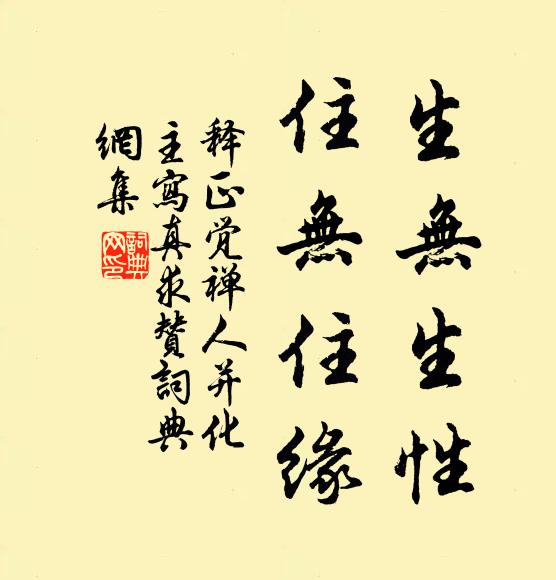 生無生性
住無住緣
释正觉禅人并化
主寫真求贊詞典
網集
詞典網印